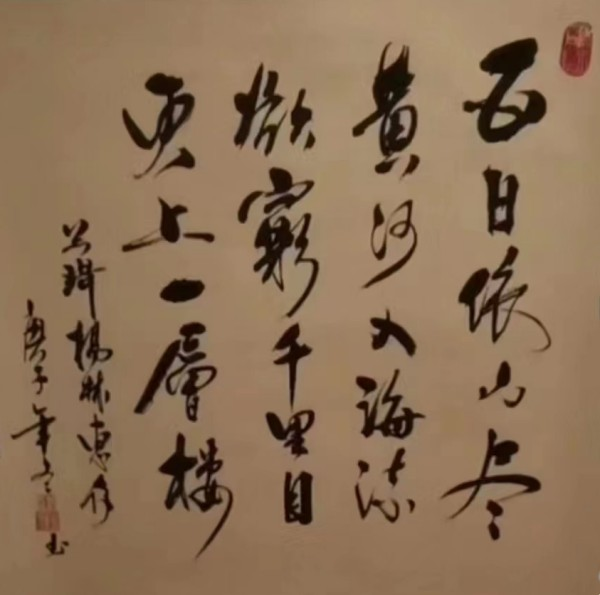 白日依山尽
黄河入海流
欲窮千里目
更上一層楼
杨林惠存
庚子年冬